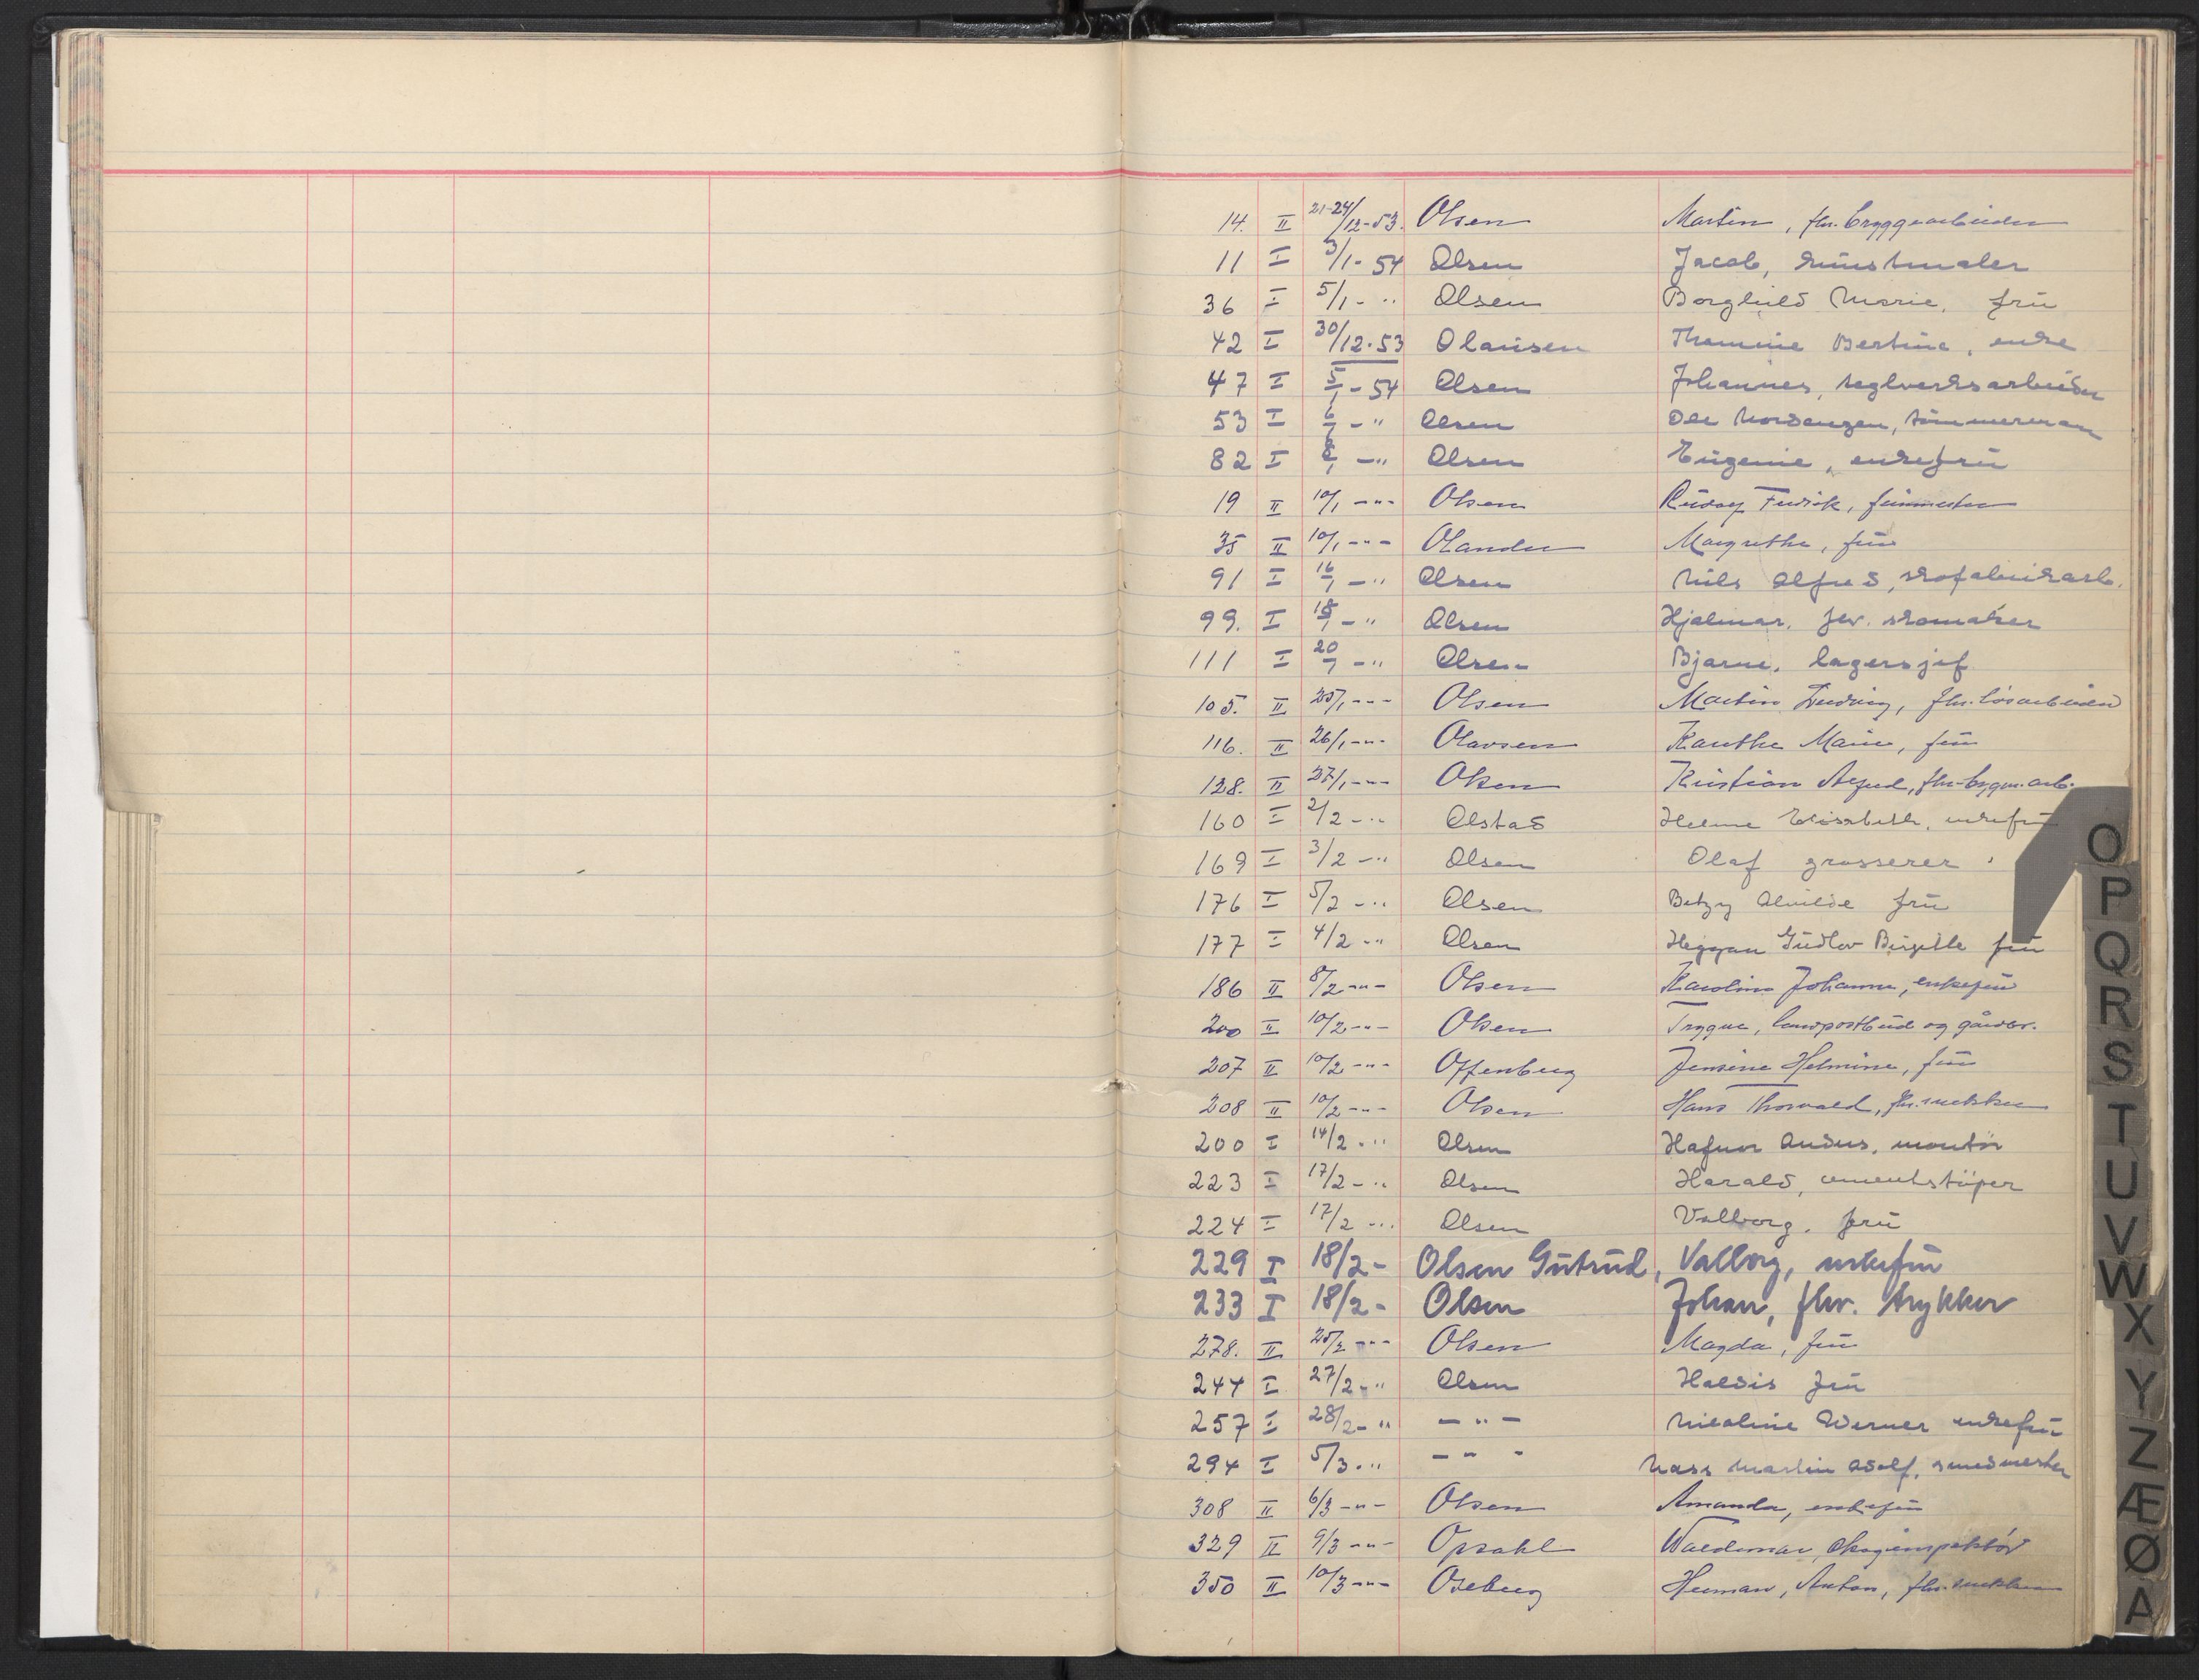 14. II 21-24/12-53. Olsen Martin, fhv. bryggearbeider
11 I 3/1-54 Olsen Jacob, kunstmaler
36 I 5/1- " Olsen Borghild Marie, frü
42 I 30/12-53 Olaüsen Thomine Bertine, enke
47 I 5/1-54 Olsen Johannes, teglverksarbeider
53 I 6/1-" Olsen Ole Nordengen, tömmermann
82 I 8/1-" Olsen Eügenie, enkefrü
19 II 10/1 -"- Olsen Rüdolf Fredrik,
35 II 10/1 -"- Olander Margrethe, frü
91 I 16/1 -" Olsen Nils Alfred, skofabrikarb.
99. I 18/1 -" Olsen Hjalmar, fhv. skomaker
111 I 20/1 -" Olsen Bjarne, lagersjef
105. II 25/1 -"- Olsen Martin Ludvig, fhv. løsarbeider
116. II 26/1 -"- Olavsen Marie, frü
128. II 27/1 -"- Olsen Kristian fhv. bygn.arb.
160 I 2/2 -" Olstad Helene Elisabeth, enkefrü
169 I 3/2 -" Olsen Olaf grosserer
176 I 5/2 -" Olsen Betzy Alvilde frü
177 I 4/2 -" Olsen Heggan Güdlov Birgitte frü
186 II 8/2 -"- Olsen Karoline Johanne, enkefrü
200 II 10/2 -"- Olsen Trygve, landpostbüd og gårdbr.
207 II 10/2 -"- Offenberg Jensine Helmine, frü
208 II 10/2 -"- Olsen Hans Thorvald, fhv. snekker
200 I 14/2 -" Olsen Hafnor Anders, montör
223 I 17/2 -" Olsen Harald, sementstöper
224 I 17/2 -" Olsen Valborg, frü
229 I 18/2- Olsen Gütrüd, Valborg, enkefrü
233 I 18/2- Olsen Johan, fhv. trykker
278. II 25/2 -"- Olsen Magda, frü
244 I 27/2 -" Olsen Haldis frü
257 I 28/2-" -"- Nicoline Werner enkefrü
294 I 5/3-" -"- Hans Martin Adolf, smedmester
308 II 6/3 -"- Olsen Amanda, enkefrü
329 II 9/3 -"- Opsahl Waldemar, skoginspektör
350 II 10/3 -"- Oseberg Herman, Anton, fhv. snekker
O
P
Q
R
S
T
U
V
W
X
Y
Z
Æ
Ø
A